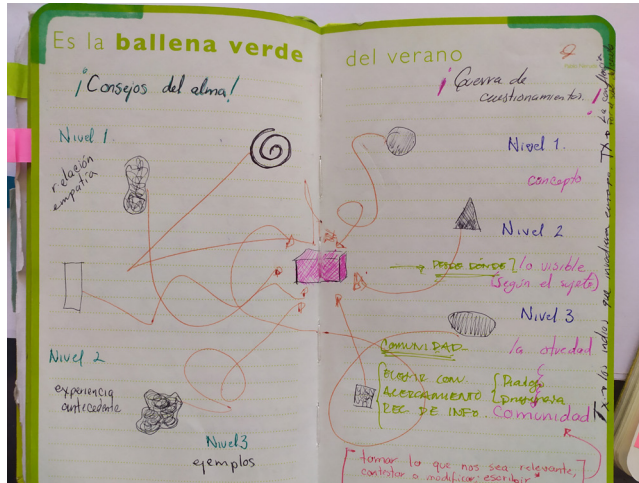 Es la ballena verde
¡Consejos del alma!
Nivel 1.
relación
empatía
Nivel 2
experiencia
antecedente
Nivel3
ejemplos
del verano
¡Guerra de
cuestionamientos!
Nivel 1.
concepto
Nivel 2
DESDE DÓNDE } lo visible
(según el sujeto)
Nivel 3
COMUNIDAD
la otredad
ELEGIR COM.
ACERCAMIENTO
REC. DE INFO.
Comunidad
tomar lo que nos sea relevante,
contestar o modificar, escribir